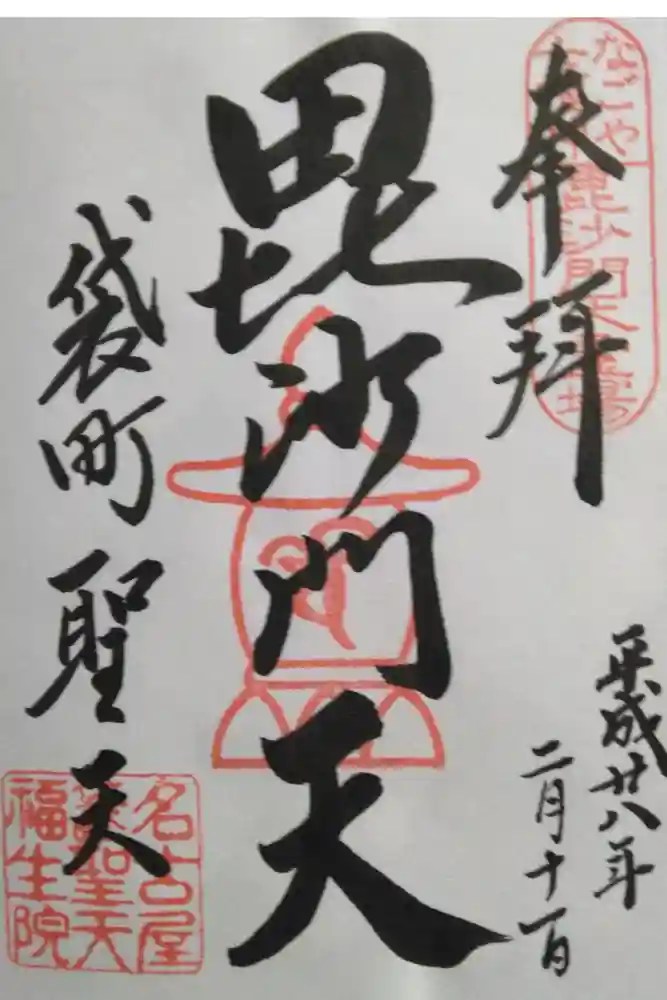 奉拝
なごや
毘沙門天霊場
平成廿八年
二月十一日
毘沙門天
袋町聖天
名古屋
聖天
福生院